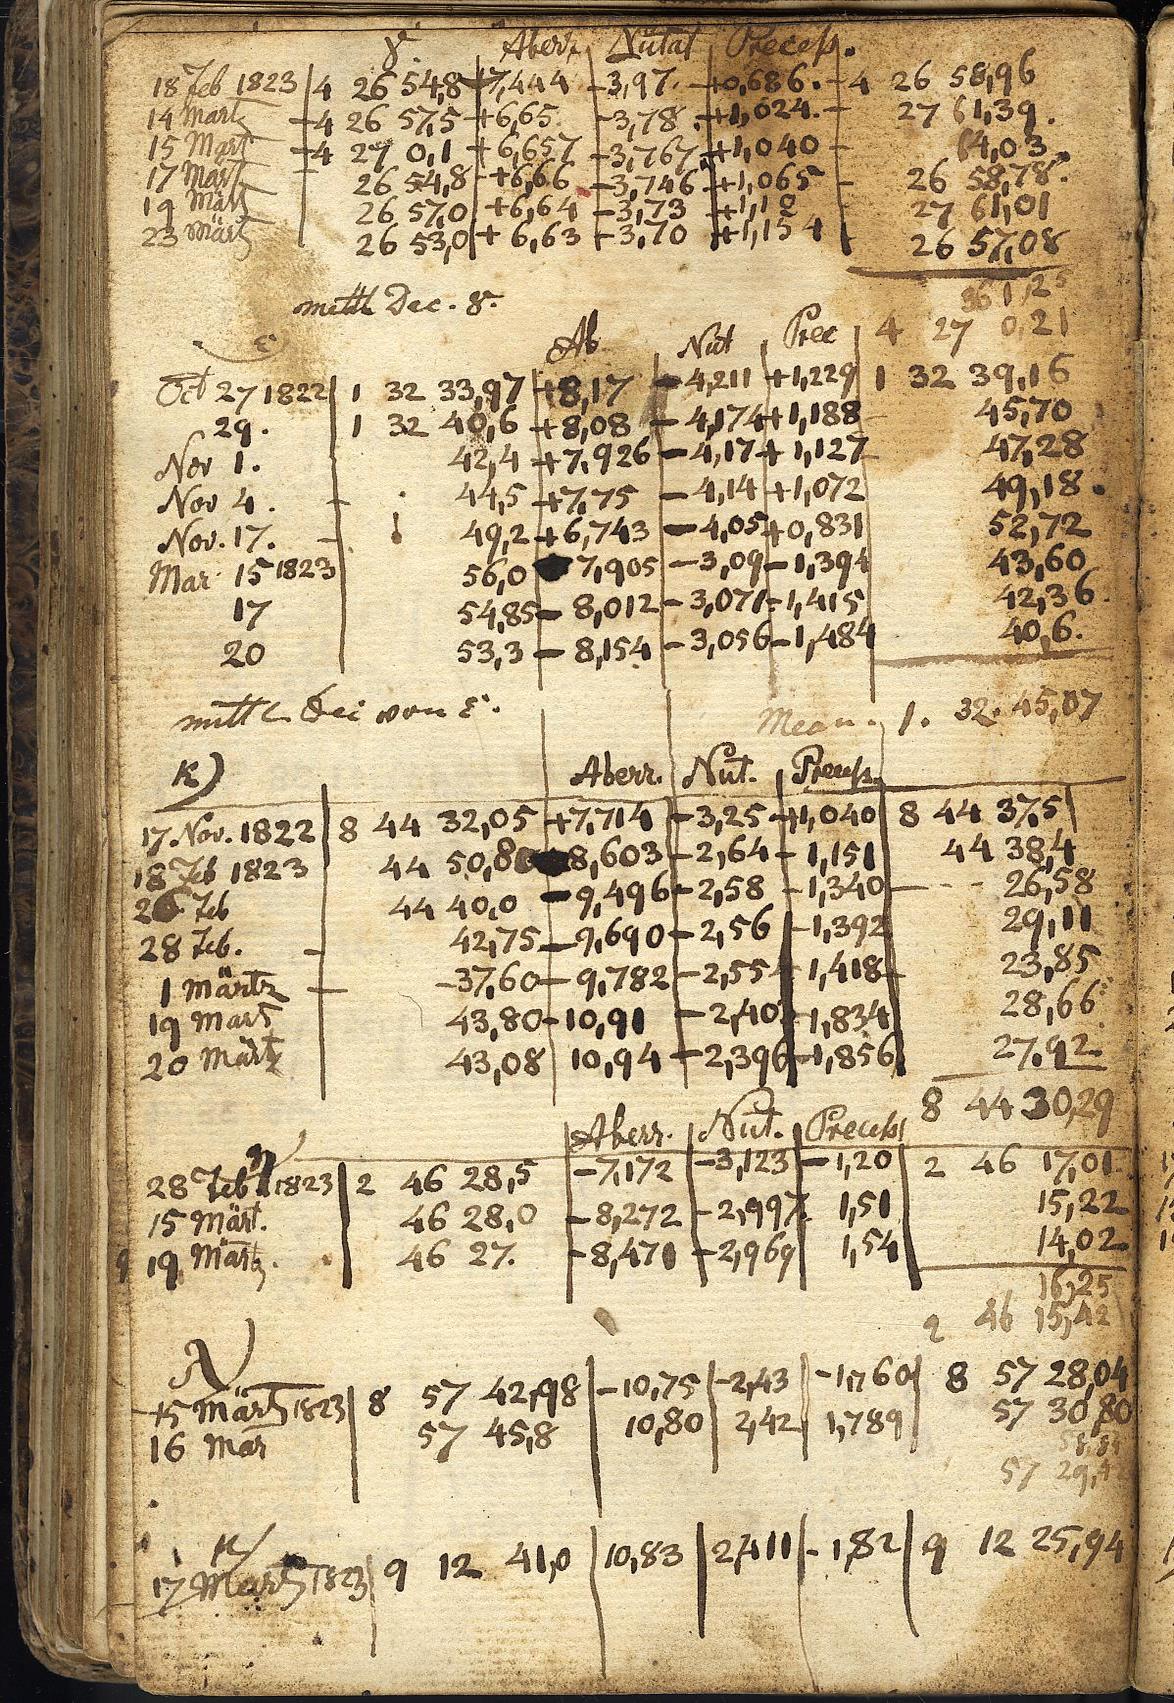 γ. Aberr. Nutat Precess.
18 Feb 1823 4 26 54,8 +7,444 -3,97. +0,686. - 4 26 58,96
14 Martz -4 26 57,5 +6,65. -3,78. +1,024. - 27 61,39.
15 Mart -4 27 0,1 +6,657 -3,767 +1,040 - 64,03.
17 Mart - 26 54,8 +6,66 -3,746 +1,065 - 26 58,78.
19 März 26 57,0 +6,64 -3,73 +1,10 27 61,01
23 märtz 26 53,0 +6,63 -3,70 +1,154 26 57,08
361,25
mittl Dec. γ. 4 27 0,21
ε Ab. Nut Prec
Oct 27 1822 1 32 33,97 +8,17 -4,211 +1,229 1 32 39,16
29. 1 32 40,6 +8,08 -4,174 +1,188 45,70
Nov 1. 42,4 +7,926 -4,17 +1,127 47,28
Nov 4. - 44,5 +7,75 -4,14 +1,072 49,18.
Nov. 17. - 49,2 +6,743 -4,05 +0,831 52,72
Mar 15 1823 56,0 7,905 -3,09 -1,394 43,60
17 54,85 -8,012 -3,071 -1,415 42,36.
20 53,3 -8,154 -3,056 -1,484 40,6.
mittl Dec von ε. Mean. 1. 32. 45,07
κ) Aberr. Nut. Precess.
17. Nov. 1822 8 44 32,05 +7,714 -3,25 +1,040 8 44 37,5
18 Feb 1823 44 50,80 8,603 -2,64 -1,151 44 38,4
26 Feb 44 40,0 -9,496 -2,58 -1,340 - - - 26,58
28 Feb. - 42,75 -9,690 -2,56 -1,392 29,11
1 märtz - -37,60 -9,782 -2,554 1,418 - 23,85
19 Mart 43,80 -10,91 -2,40 -1,834 28,66
20 Märtz 43,08 10,94 -2,396 -1,856 27,92
8 44 30,29
η Aberr. Nut. Precess
28 Feb 1823 2 46 28,5 -7,172 -3,123 -1,20 2 46 17,01.
15 Märt. 46 28,0 -8,272 -2,997 1,51 15,22
19 Martz. 46 27. -8,471 -2,969 1,54 14,02
16,25
2 46 15,42
λ)
15 Märtz 1823 8 57 42,98 -10,75 -2,43 -1,760 8 57 28,04
16 Mar 57 45,8 10,80 2,42 1,789 57 30,80
57 29,42
μ/
17 Martz 1823 9 12 41,0 10,83 2,411 -1,82 9 12 25,94